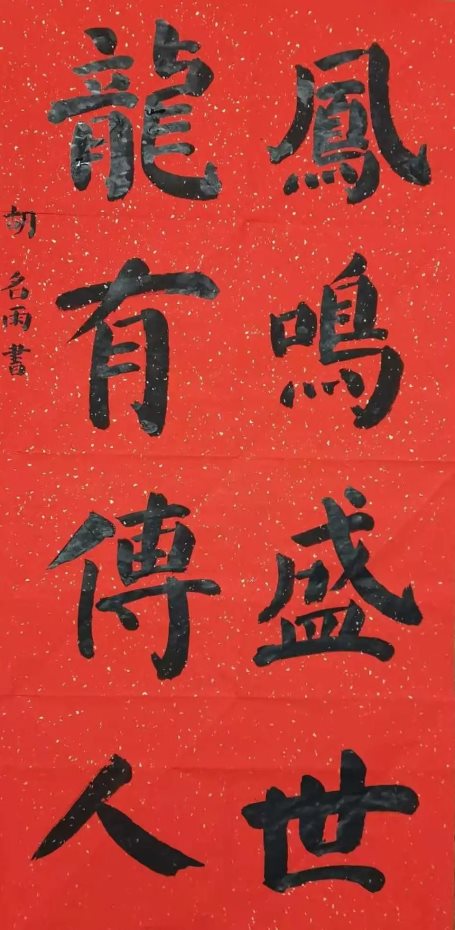 鳳鳴盛世
龍有傳人
胡名雨書